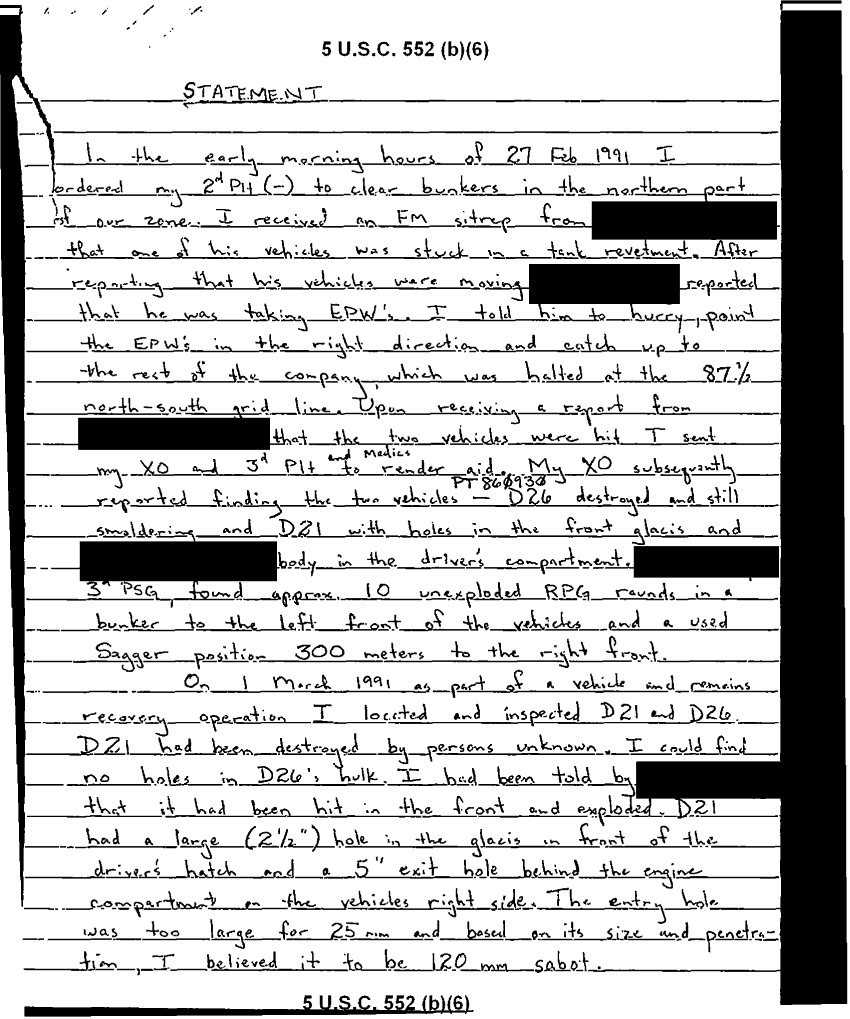 5 U.S.C. 552 (b)(6)
STATEMENT
In the early morning hours of 27 Feb 1991 I
ordered my 2d Plt (-) to clear bunkers in the northern part
of our zone. I received an FM sitrep from
that one of his vehicles was stuck in a tank revetment. After
reporting that his vehicles were moving reported
that he was taking EPW's. I told him to hurry, point
the EPW's in the right direction and catch up to
the rest of the company, which was halted at the 87½
north-south grid line. Upon receiving a report from
that the two vehicles were hit I sent
and Medics
my XO and 3d Plt to render aid. My XO subsequently
PT 860930
reported finding the two vehicles — D26 destroyed and still
smoldering and D21 with holes in the front glacis and
body in the driver's compartment.
3d PSG, found approx. 10 unexploded RPG rounds in a
bunker to the left front of the vehicles and a used
Sagger position 300 meters to the right front.
On 1 March 1991 as part of a vehicle and remains
recovery operation I located and inspected D21 and D26.
D21 had been destroyed by persons unknown. I could find
no holes in D26's hulk. I had been told by
that it had been hit in the front and exploded. D21
had a large (2½") hole in the glacis in front of the
driver's hatch and a 5" exit hole behind the engine
compartment on the vehicles right side. The entry hole
was too large for 25 mm and based on its size and penetra-
tion, I believed it to be 120 mm sabot.
5 U.S.C. 552 (b)(6)